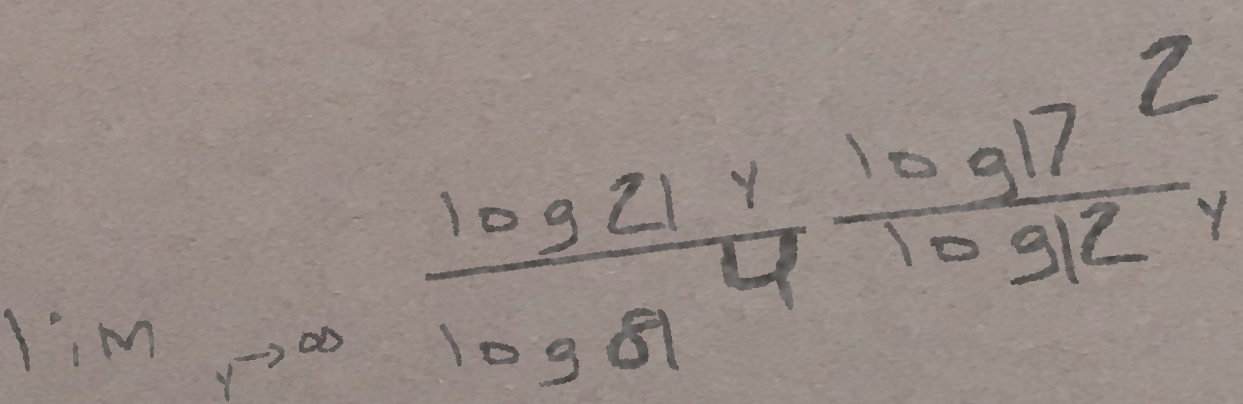 \lim_{y \to \infty} \frac{\log_{21} y}{\log_{81} 4} \frac{\log_{17} 2}{\log_{12} y}